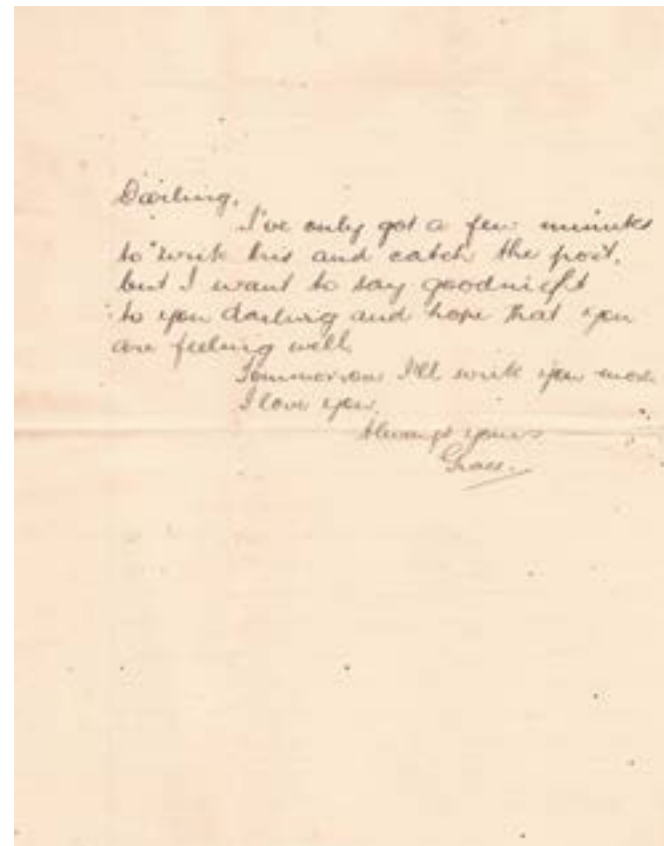 Darling,
I've only got a few minutes
to write this and catch the post,
but I want to say goodnight
to you darling and hope that you
are feeling well.
Tommorrow I'll write you more.
I love you.
Always yours